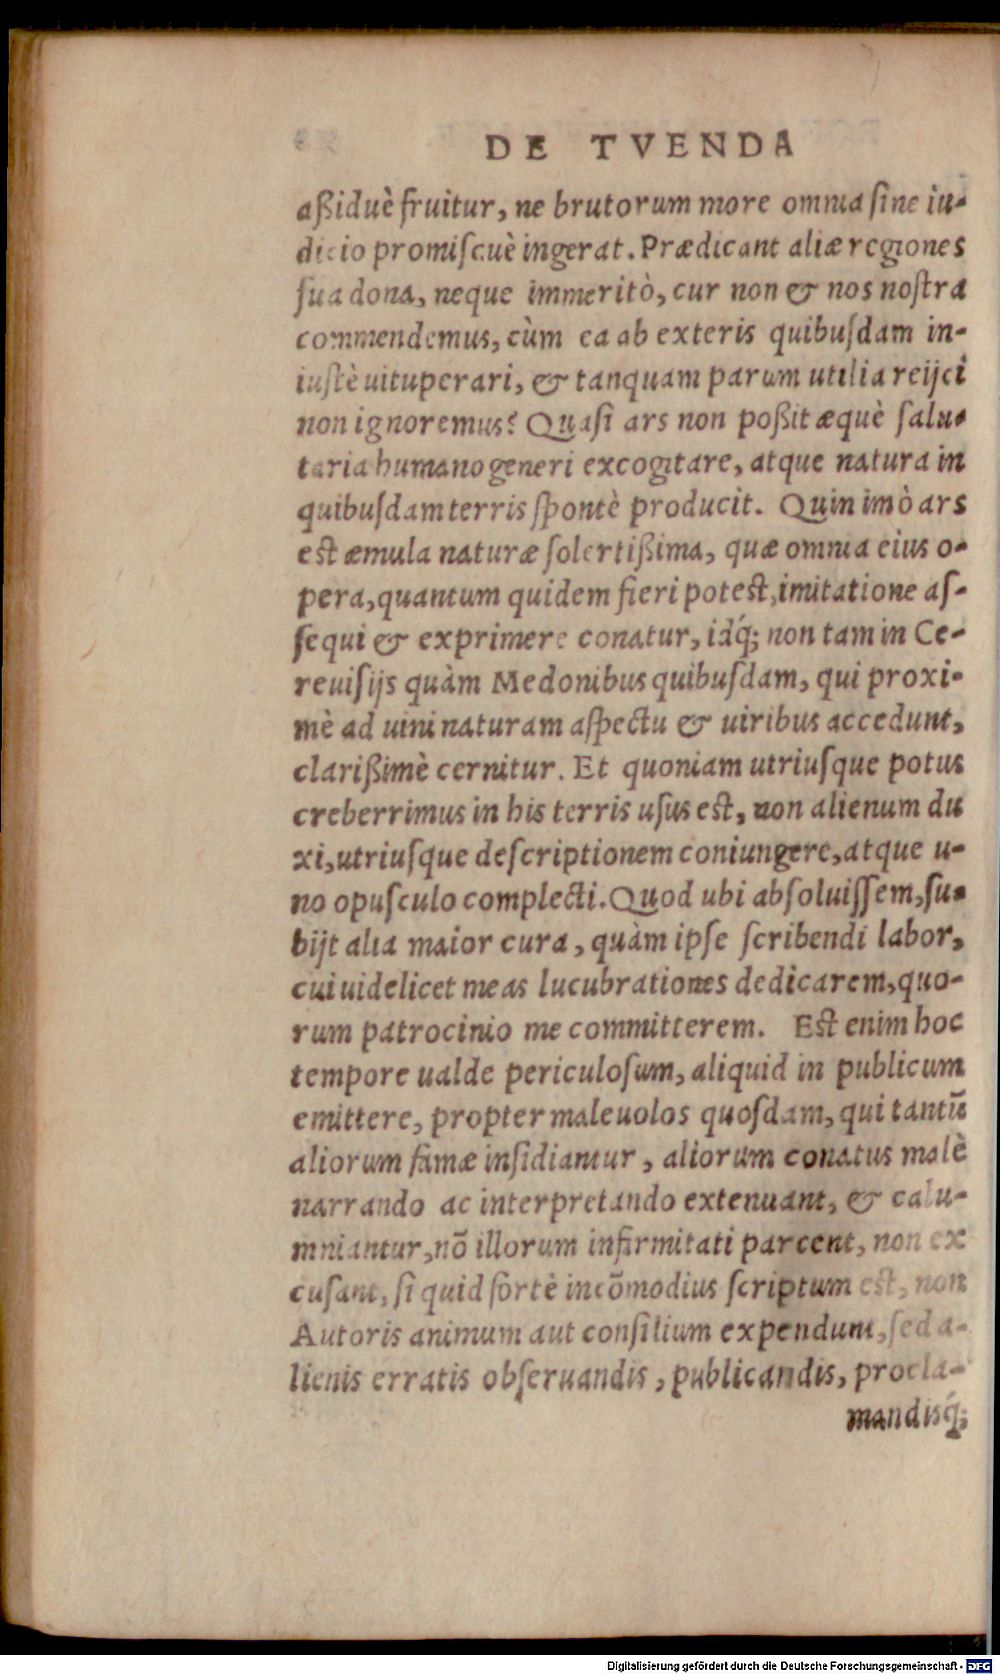 DE TVENDA
aßiduè fruitur, ne brutorum more omnia ſine iu-
dicio promiſcuè ingerat. Prædicant aliæ regiones
ſua dona, neque immeritò, cur non & nos noſtra
commendemus, cùm ea ab exteris quibuſdam in-
iuſtè uituperari, & tanquam parum utilia reijci
non ignoremus? Quaſi ars non poßit æquè ſalu-
taria humano generi excogitare, atque natura in
quibuſdam terris ſpontè producit. Quin imò ars
eſt æmula naturæ ſolertißima, quæ omnia eius o-
pera, quantum quidem fieri poteſt, imitatione aſ-
ſequi & exprimere conatur, idq́; non tam in Ce-
reuiſijs quàm Medonibus quibuſdam, qui proxi-
mè ad uini naturam aſpectu & uiribus accedunt,
clarißimè cernitur. Et quoniam utriuſque potus
creberrimus in his terris uſus eſt, non alienum du
xi, utriuſque deſcriptionem coniungere, atque u-
no opuſculo complecti. Quod ubi abſoluiſſem, ſu-
bijt alia maior cura, quàm ipſe ſcribendi labor,
cui uidelicet meas lucubrationes dedicarem, quo-
rum patrocinio me committerem. Eſt enim hoc
tempore ualde periculoſum, aliquid in publicum
emittere, propter maleuolos quoſdam, qui tantū
aliorum famæ inſidiantur, aliorum conatus malè
narrando ac interpretando extenuant, & calu-
mniantur, nō illorum infirmitati parcent, non ex
cuſant, ſi quid fortè incōmodius ſcriptum eſt, non
Autoris animum aut conſilium expendunt, ſed a-
lienis erratis obſeruandis, publicandis, procla-
mandisq́;
Digitalisierung gefördert durch die Deutsche Forschungsgemeinschaft - DFG